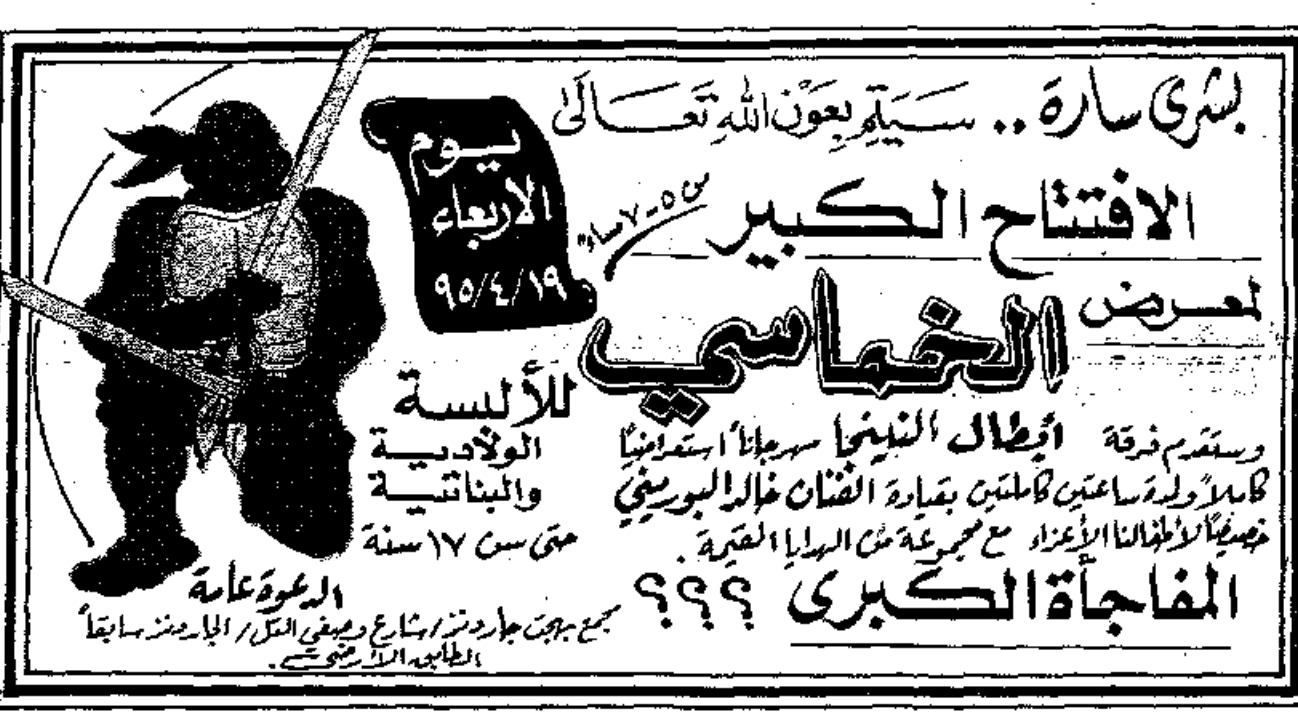 بشرى سارة .. سيتم بعون الله تعالى
يوم
الاربعاء
٩٥/٤/١٩
الافتتاح الكبير
من ٥-٧ مساءً
لمعرض
الخماسي
للألبسة
الولادية
والبناتية
حتى سن ١٧ سنة
وستقدم فرقة أبطال النينجا مهرجاناً استعراضياً
كاملاً ولمدة ساعتين كاملتين بقيادة الفنان خالد البوريني
خصيصاً لأطفالنا الأعزاء مع مجموعة من الهدايا القيمة .
المفاجأة الكبرى ؟؟؟
الدعوة عامة
مجمع بهجت جاردنز / شارع وصفي التل / الجاردنز سابقاً
الطابق الأرضي .